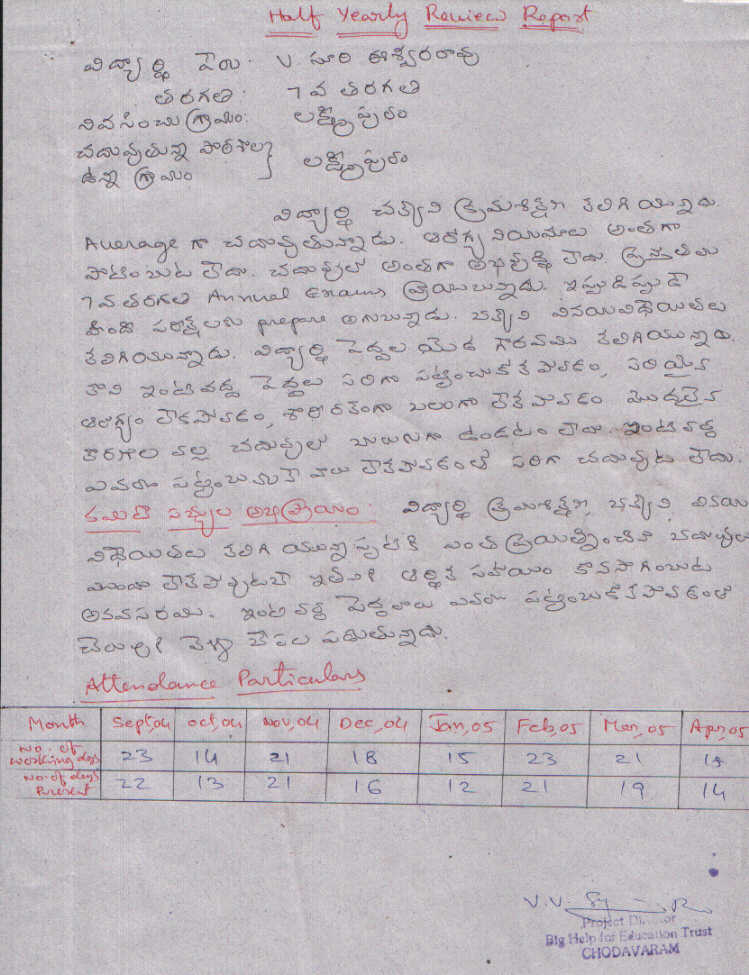 Half Yearly Review Report
విద్యార్థి పేరు: V. సూరి ఈశ్వరరావు
తరగతి: 7వ తరగతి
నివసించు గ్రామం: లక్ష్మీపురం
చదువుతున్న పాఠశాల
ఉన్న గ్రామం } లక్ష్మీపురం
విద్యార్థి చక్కని క్రమశిక్షణ కలిగియున్నాడు.
Average గా చదువుతున్నాడు. ఆరోగ్య నియమాలు అంతగా
పాటించుట లేదు. చదువులో అంతగా అభివృద్ధి లేదు. ప్రస్తుతము
7వ తరగతి Annual Exams వ్రాయుచున్నాడు. ఇప్పుడిప్పుడే
పరీక్షలకు prepare అగుచున్నాడు. చక్కని వినయవిధేయతలు
కలిగియున్నాడు. విద్యార్థి పెద్దల యెడ గౌరవము కలిగియున్నాడు.
కాని ఇంటివద్ద పెద్దలు సరిగా పట్టించుకోకపోవడం, సరియైన
ఆరోగ్యం లేకపోవడం, శారీరకంగా బలంగా లేకపోవడం మొదలైన
కారణాల వల్ల చదువులో బాగుగా ఉండటం లేదు. ఇంటివద్ద
ఎవరూ పట్టించుకునే వారు లేకపోవడంతో సరిగా చదువుట లేదు.
కమిటీ సభ్యుల అభిప్రాయం: విద్యార్థి క్రమశిక్షణ, చక్కని వినయ
విధేయతలు కలిగి యున్నప్పటికీ ఎంత ప్రయత్నించినా చదువులో
ముందు లేకపోవుటచే ఇతనికి ఆర్థిక సహాయం కొనసాగించుట
అనవసరము. ఇంటి వద్ద పెద్దవారు ఎవరూ పట్టించుకోకపోవడంతో
వెళ్లి చేపలు పడుతున్నాడు.
Attendance Particulars
Month Sept,04 Oct,04 Nov,04 Dec,04 Jan,05 Feb,05 Mar,05 Apr,05
No. of working days 23 14 21 18 15 23 21
No. of days Present 22 13 21 16 12 21 19 14
V.V.
Project Director
Big Help for Education Trust
CHODAVARAM